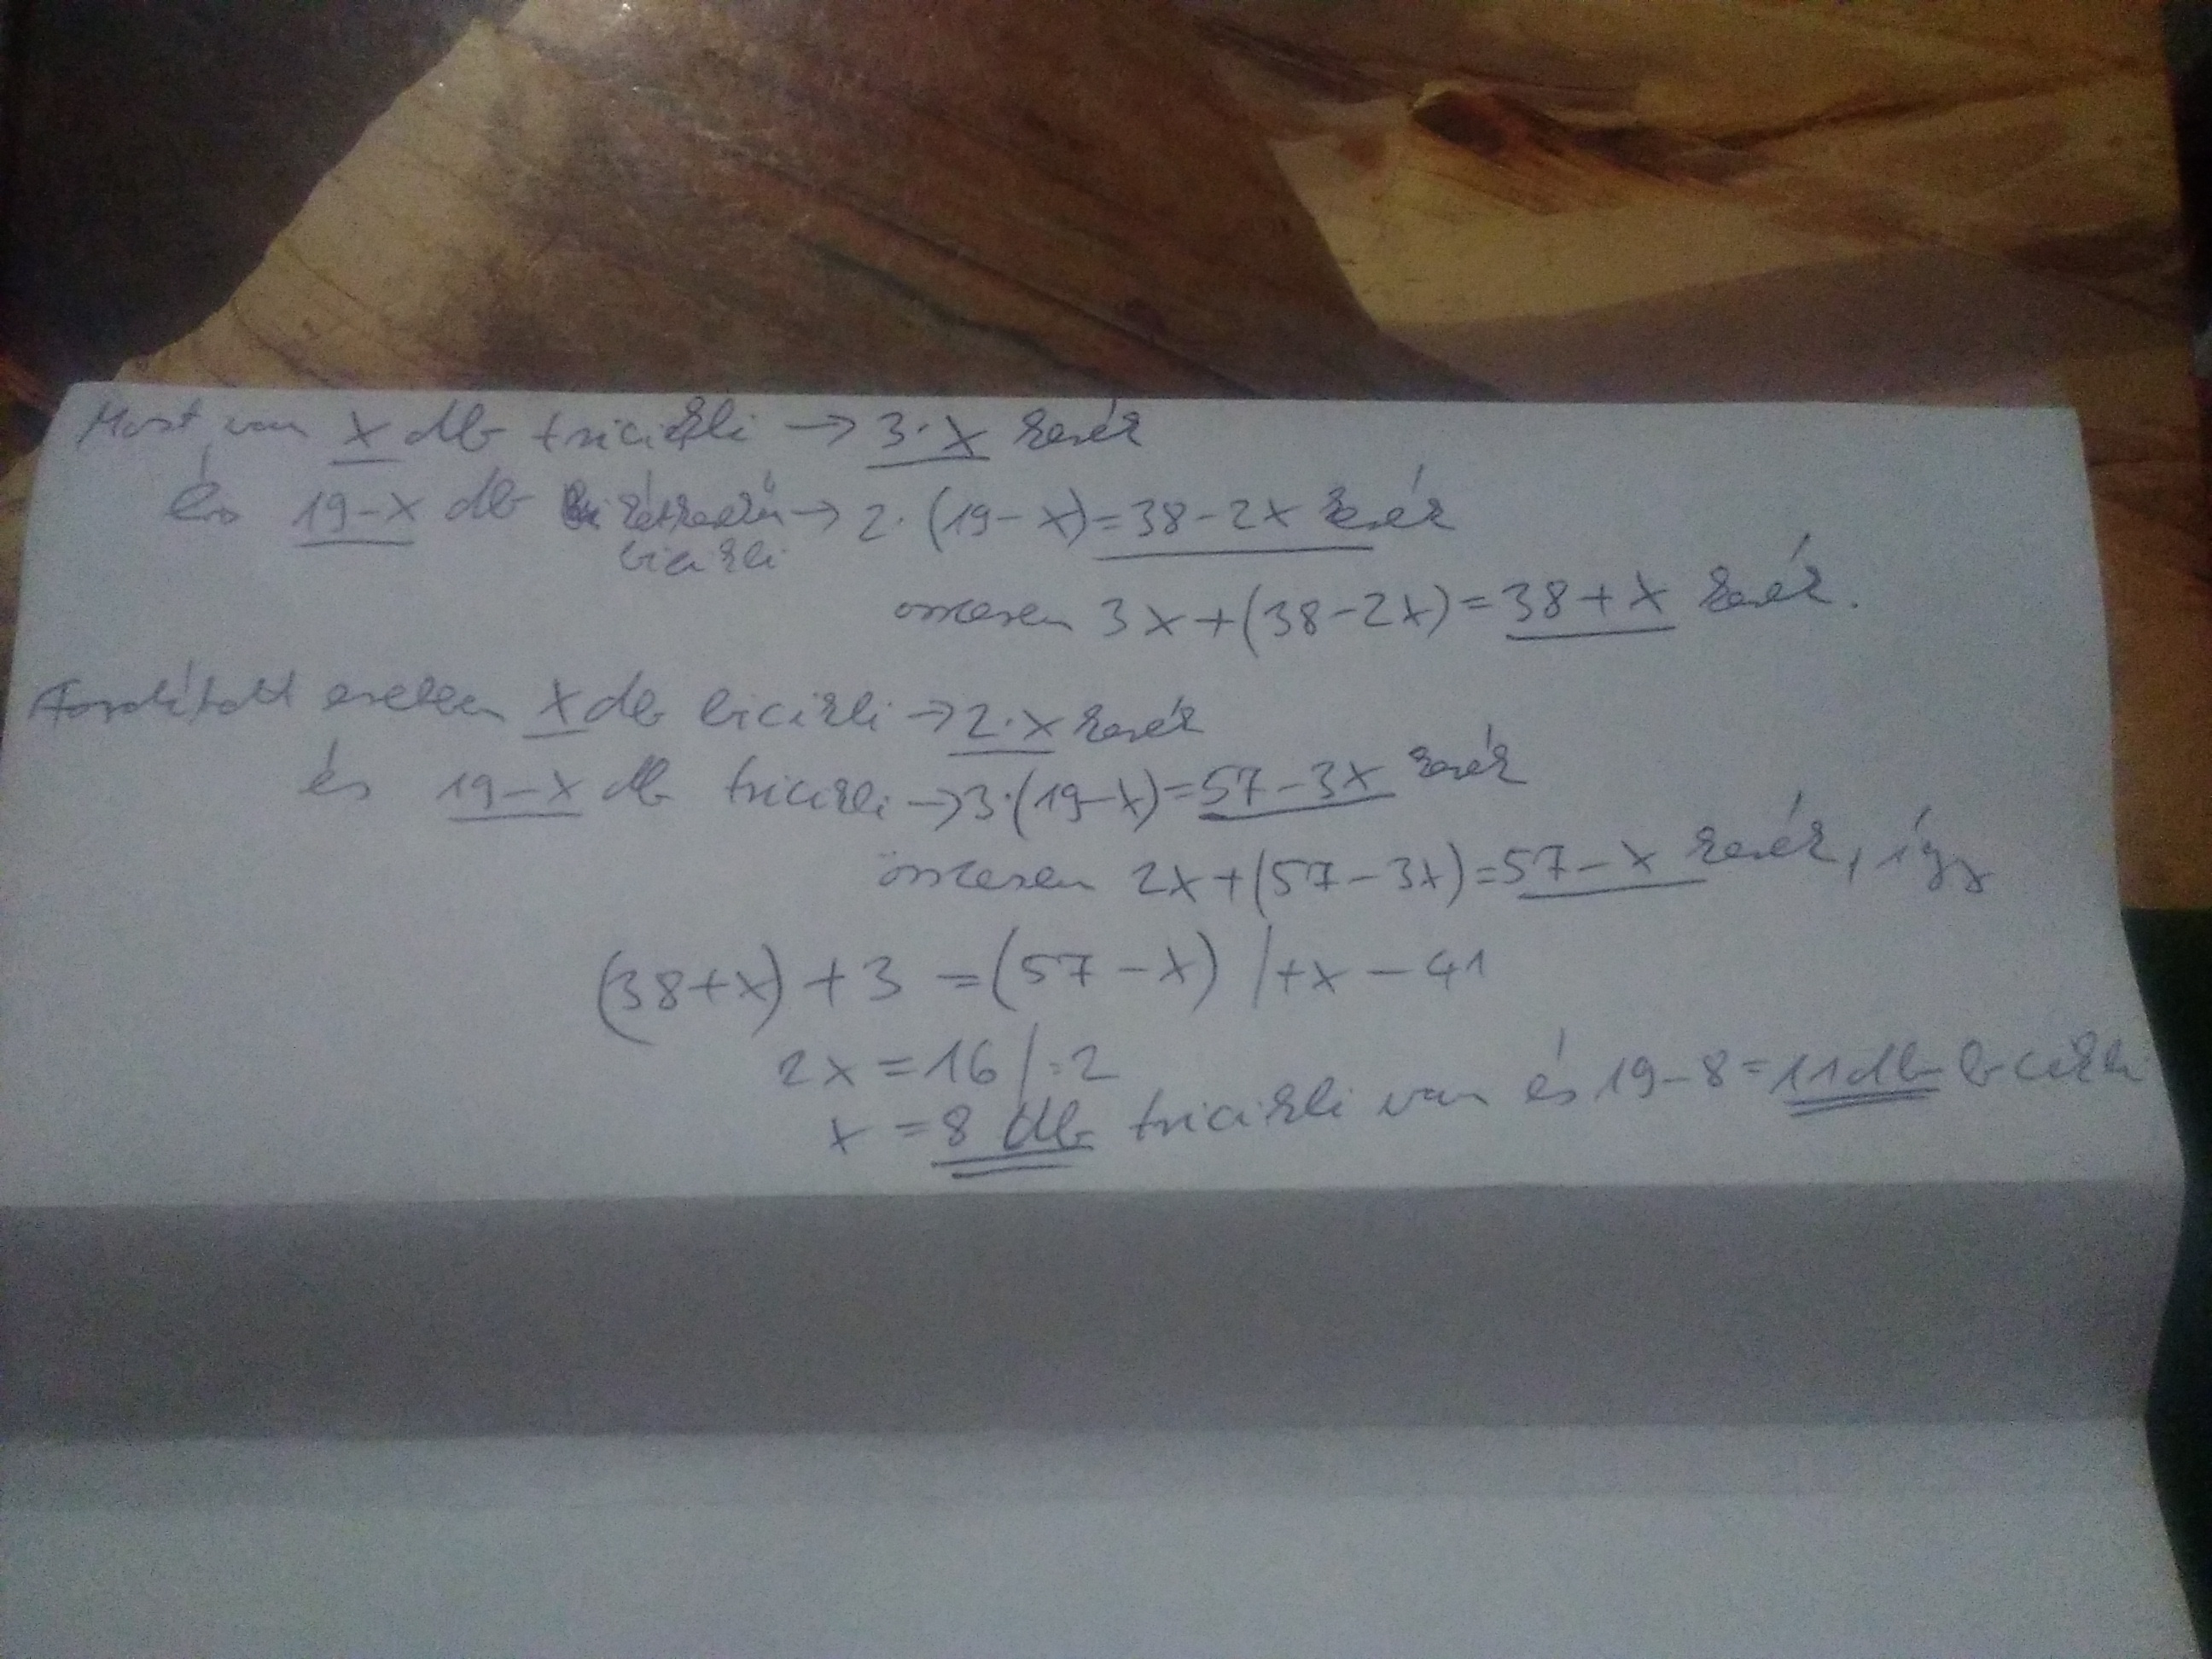 Most van x db tricikli → 3·x kerék
és 19-x db kétkerekű → 2·(19-x)=38-2x kerék
bicikli
összesen 3x+(38-2x)=38+x kerék.
Fordított esetben x db bicikli → 2·x kerék
és 19-x db tricikli → 3·(19-x)=57-3x kerék
összesen 2x+(57-3x)=57-x kerék, így
(38+x)+3 =(57-x) /+x-41
2x=16/:2
x=8 db tricikli van és 19-8=11 db bicikli